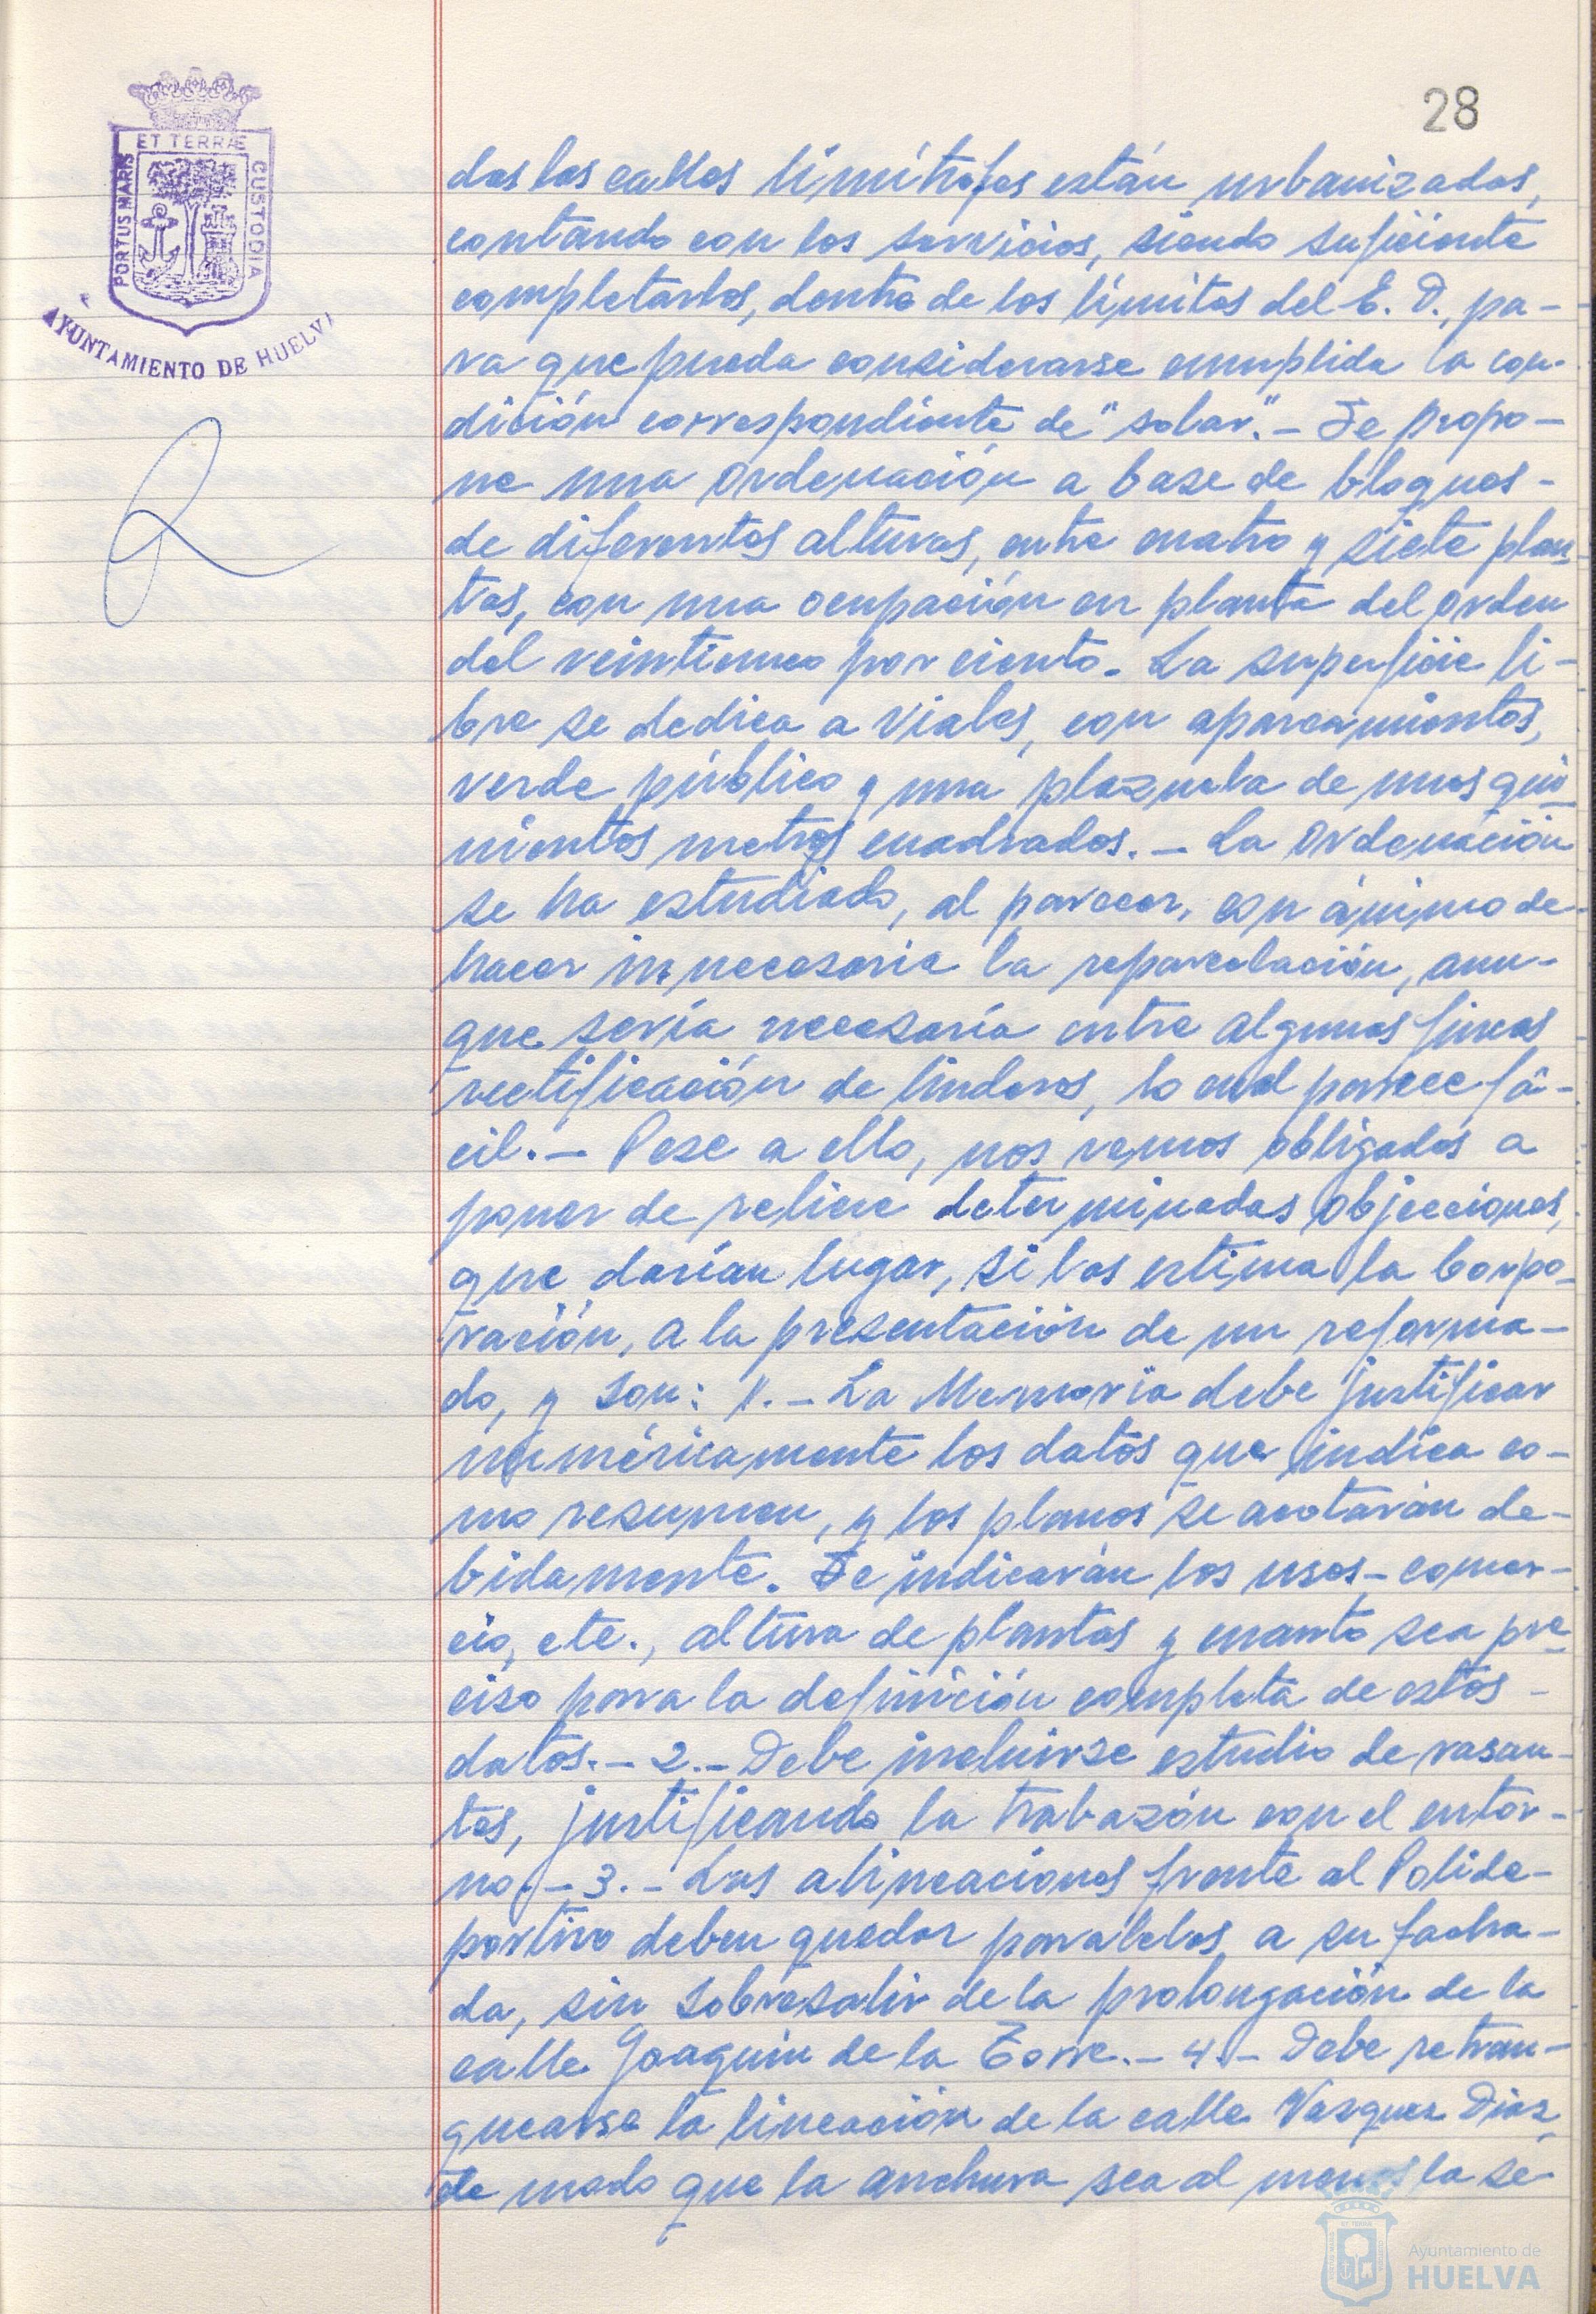 28
ET TERRÆ
PORTUS MARIS
CUSTODIA
AYUNTAMIENTO DE HUELVA
das las calles limítrofes están urbanizadas,
contando con los servicios, siendo suficiente
completarlos, dentro de los límites del E. D., pa-
ra que pueda considerarse cumplida la con-
dición correspondiente de "solar".- Se propo-
ne una Ordenación a base de bloques-
de diferentes alturas, entre cuatro y siete plan-
tas, con una ocupación en planta del orden
del veinticinco por ciento.- La superficie li-
bre se dedica a viales, con aparcamientos,
verde público y una plazuela de unos qui-
nientos metros cuadrados.- La Ordenación
se ha estudiado, al parecer, con ánimo de-
hacer innecesaria la reparcelación, aun-
que sería necesaria entre algunas fincas
rectificación de linderos, lo cual parece fá-
cil.- Pese a ello, nos vemos obligados a
poner de relieve determinadas objecciones,
que darían lugar, si las estima la Corpo-
ración, a la presentación de un reforma-
do, y son: 1.- La Memoria debe justificar
numéricamente los datos que indica co-
mo resumen, y los planos se acotarán de-
bidamente. Se indicarán los usos- comer-
cio, etc., altura de plantas y cuanto sea pre-
ciso para la definición completa de estos-
datos.- 2.- Debe incluirse estudio de rasan-
tes, justificando la trabazón con el entor-
no.- 3.- Las alineaciones frente al Polide-
portivo deben quedar paralelas a su facha-
da, sin sobresalir de la prolongación de la
calle Joaquín de la Torre.- 4.- Debe retran-
quearse la lineación de la calle Vazquez Diaz
de modo que la anchura sea al menos la se-
Ayuntamiento de
HUELVA